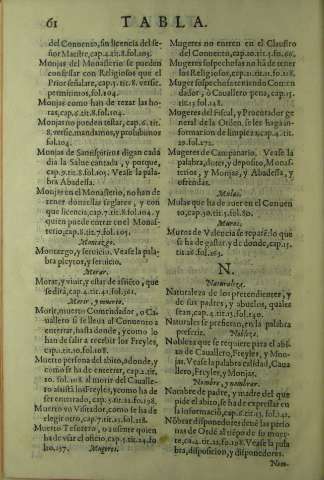 61 TABLA.
del Conuento, sin licencia del se-
ñor Maestre, cap.4.tit.8.fol.104.
Monjas del Monasterio se pueden
confessar con Religiosos que el
Prior señalare, cap.5.tit.8. versic.
permitimos, fol.104.
Monjas como han de rezar las ho-
ras, cap.6.tit.8.fol.104.
Monjas no pueden testar, cap.6.tit.
8.versic.mandamos, y prohibimos
fol.104.
Monjas de Santispiritus digan cada
dia la Salue cantada, y porque,
cap.9.tit.8.fol.105. Vease la pala-
bra Abadessa.
Monjas en el Monasterio, no han de
tener donzellas seglares, y con
que licencia, cap.7.tit.8.fol.104. y
quien puede entrar en el Monast-
erio, cap.8.tit.8.fol.105.
Montazgo.
Montazgo, y seruicio. Vease la pala-
bra pleytos, y seruicio.
Morar.
Morar, y viuir, y estar de assieto, que
se dirà, cap.4.tit.41.fol.361.
Morir, y muerte.
Morir, muerto Comendador, ò Ca-
uallero si se lleua al Conuento a
enterrar, hasta donde, y como lo
han de salir a recebir los Freyles,
cap.tit.10.fol.108.
Muerto persona del abito, adonde, y
como se ha de enterrar, cap.2.tit.
10. fol.108. al morir del Cauall-
ero assista los Freyles, y como ha de
ser enterrado, cap.5.tit.22.fo.198.
Muerto vn Visitador, como se ha de
elegir otro, cap.7.tit.25.fol.218.
Muerto Tesorero, o ausente quien
ha de vsar el oficio, cap.5.tit.24.fo
lio.157. Mugeres.
Mugeres no entren en el Claustro
del Conuento, cap.10.tit.5.fo.66.
Mugeres sospechosas no ha de tener
los Religiosos, cap.11.tit.11.fo.118.
Muger sospechosa teniendo Comen
dador, ò Cauallero pena, cap.15.
tit.13.fol.148.
Mugeres del Fiscal, y Procurador ge
neral de la Orden, si les haga in-
formacion de limpieza, cap.4.tit.
20.fol.172.
Mugeres de Campanario. Vease la
palabra, diner, y deposito, Monas-
terios, y Monjas, y Abadessa, y
ofrendas.
Mulas.
Mulas que ha de auer en el Conuen
to, cap.30.tit.5.fol.80.
Muros.
Muros de Valencia se reparé lo que
se ha de gastar, y de donde, cap.15.
tit.26.fol.263.
N.
Naturaleza.
Naturaleza de los pretendientes, y
de sus padres, y abuelos, qual se
eran, cap.2.tit.13.fol.130.
Naturales se prefieran, en la palabra
preferir. Nobleza.
Nobleza que se requiere para el abi-
to de Cauallero, Freyles, y Mon-
jas. Vease la palabra calidad, Caua
llero, Freyles, y Monjas.
Nombre, y nombrar.
Nombre de padre, y madre del que
pide el abito, se ha de expressar en
la informació, cap.6.tit.13.fol.141.
Nóbrar disponedores deue las perso
nas de Ordé al tiépo de su muer-
te, ca.4.tit.22.fo.198. Vease la pala
bra, disposicion, y disponedores.
Nom-